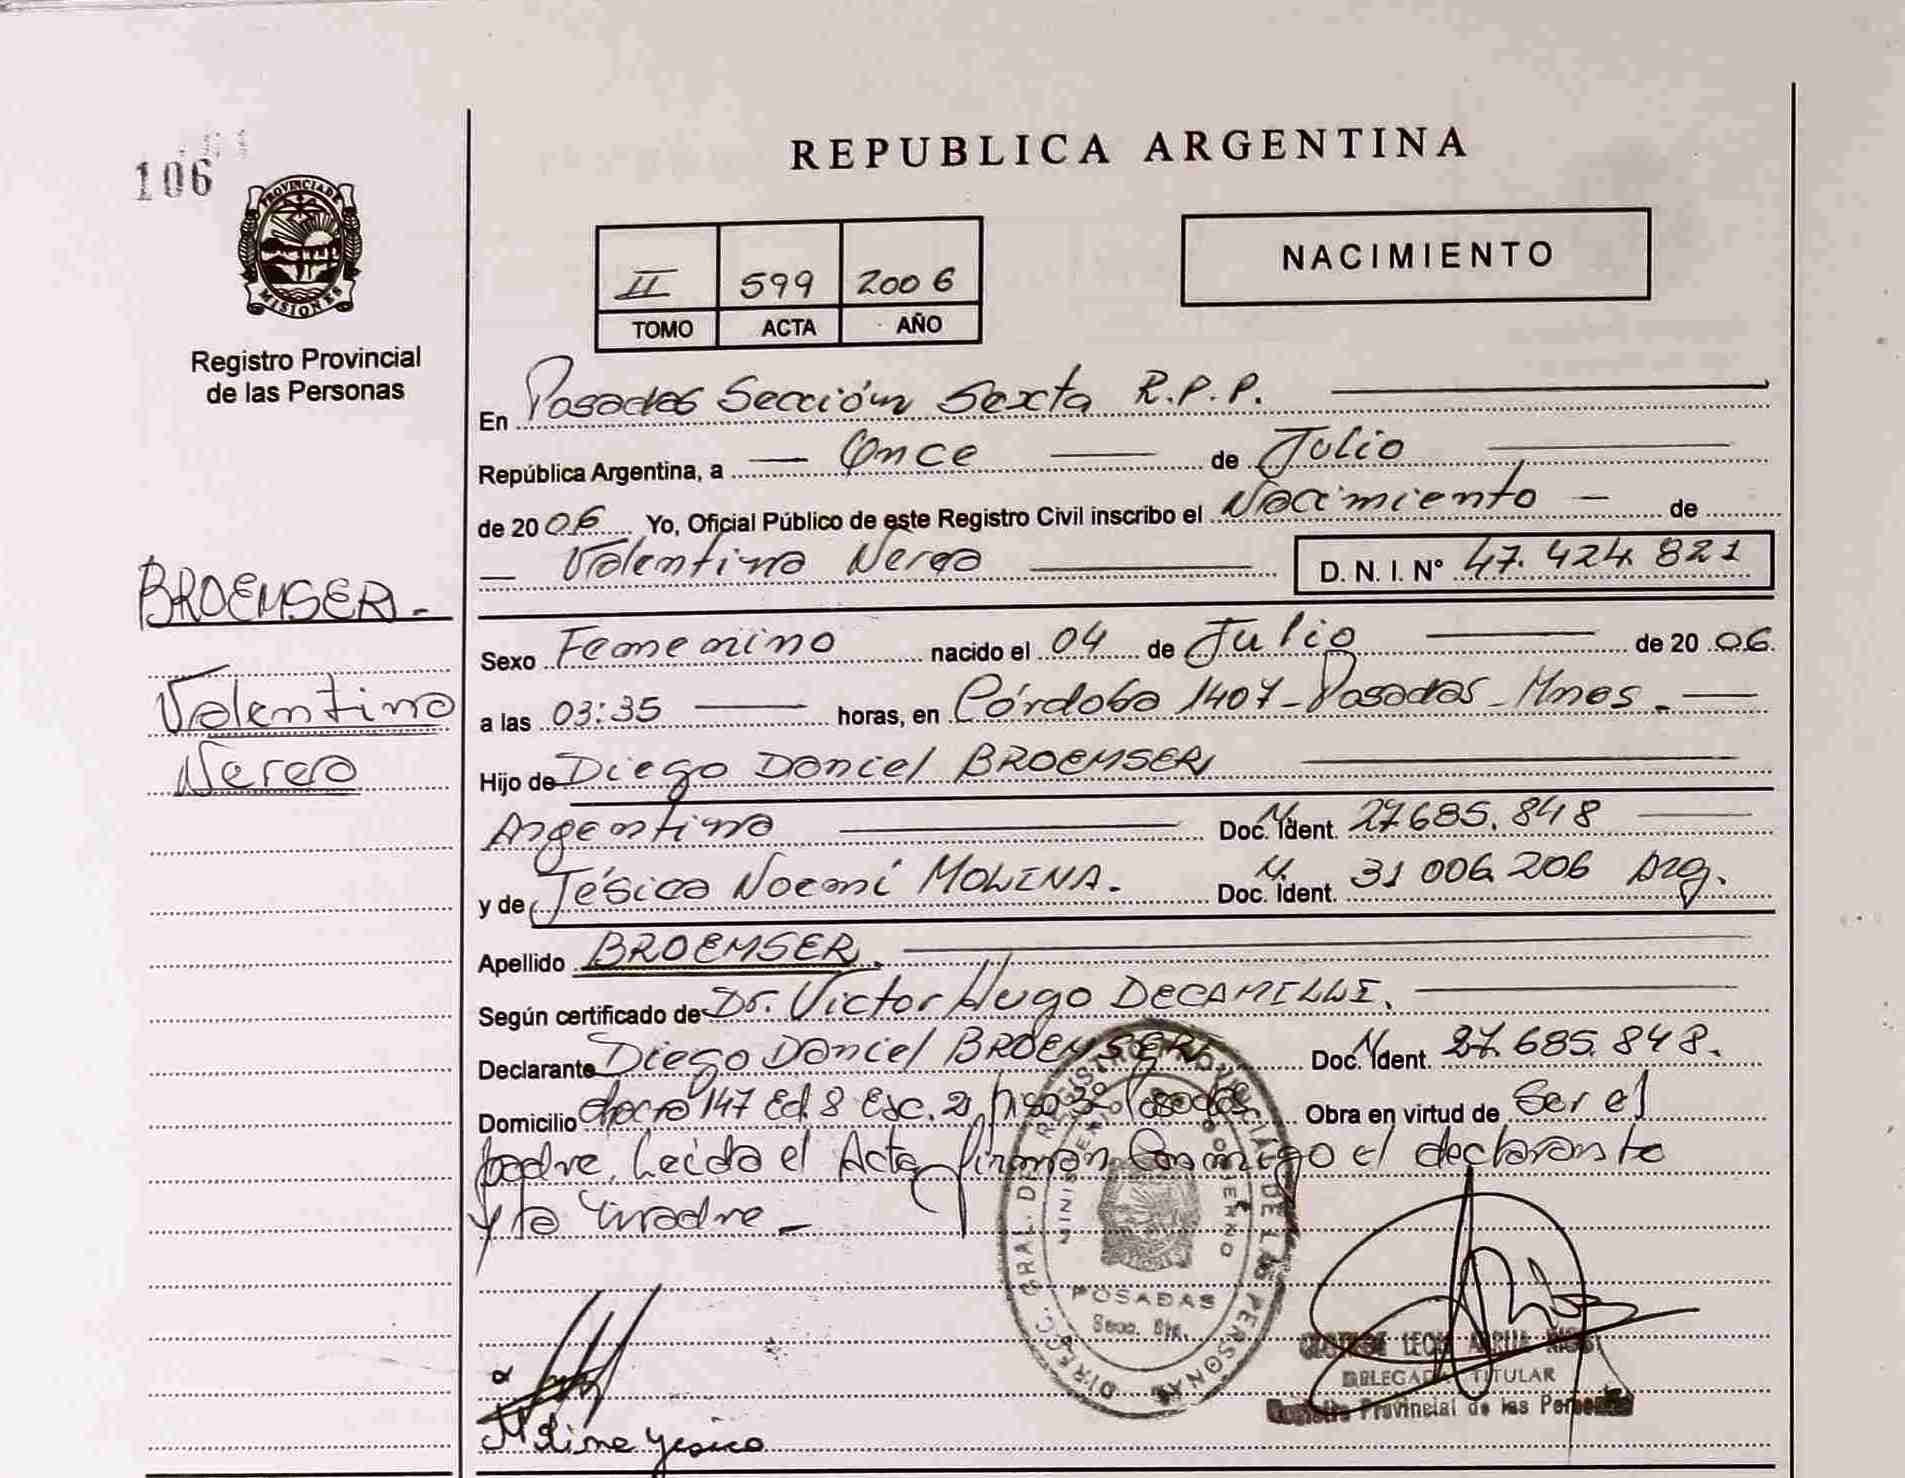 106
PROVINCIA DE MISIONES
Registro Provincial
de las Personas
BROEMSER.-
Valentina
Nerea
REPUBLICA ARGENTINA
II 599 2006
TOMO ACTA AÑO
NACIMIENTO
En Posadas Sección Sexta R.P.P.
República Argentina, a — Once — de Julio
de 2006 Yo, Oficial Público de este Registro Civil inscribo el Nacimiento — de
— Valentina Nerea — D. N. I. N° 47.424.821
Sexo Femenino nacido el 04 de Julio — de 2006.
a las 03:35 — horas, en Córdoba 1407-Posadas-Mnes.-
Hijo de Diego Daniel BROEMSER
Argentino — Doc. Ident. 27.685.848
y de Jésica Noemí MOLINA. Doc. Ident. 31.006.206 Arg.
Apellido BROEMSER.
Según certificado de Dr. Victor Hugo DECAMILLI.
Declarante Diego Daniel BROEMSER Doc. Ident. 27.685.848.
Domicilio chacra 147 Ed. 8 Esc. 2, piso 3º Posadas. Obra en virtud de Ser el
padre. Leida el Acta firman Conmigo el declarante
y la madre.-
DIREC. GRAL. DE REGISTRO PROVINCIAL DE LAS PERSONAS
MINISTERIO DE GOBIERNO
POSADAS
Secc. 6ta.
DELEGADA TITULAR
Registro Provincial de las Personas
Molina Yesica